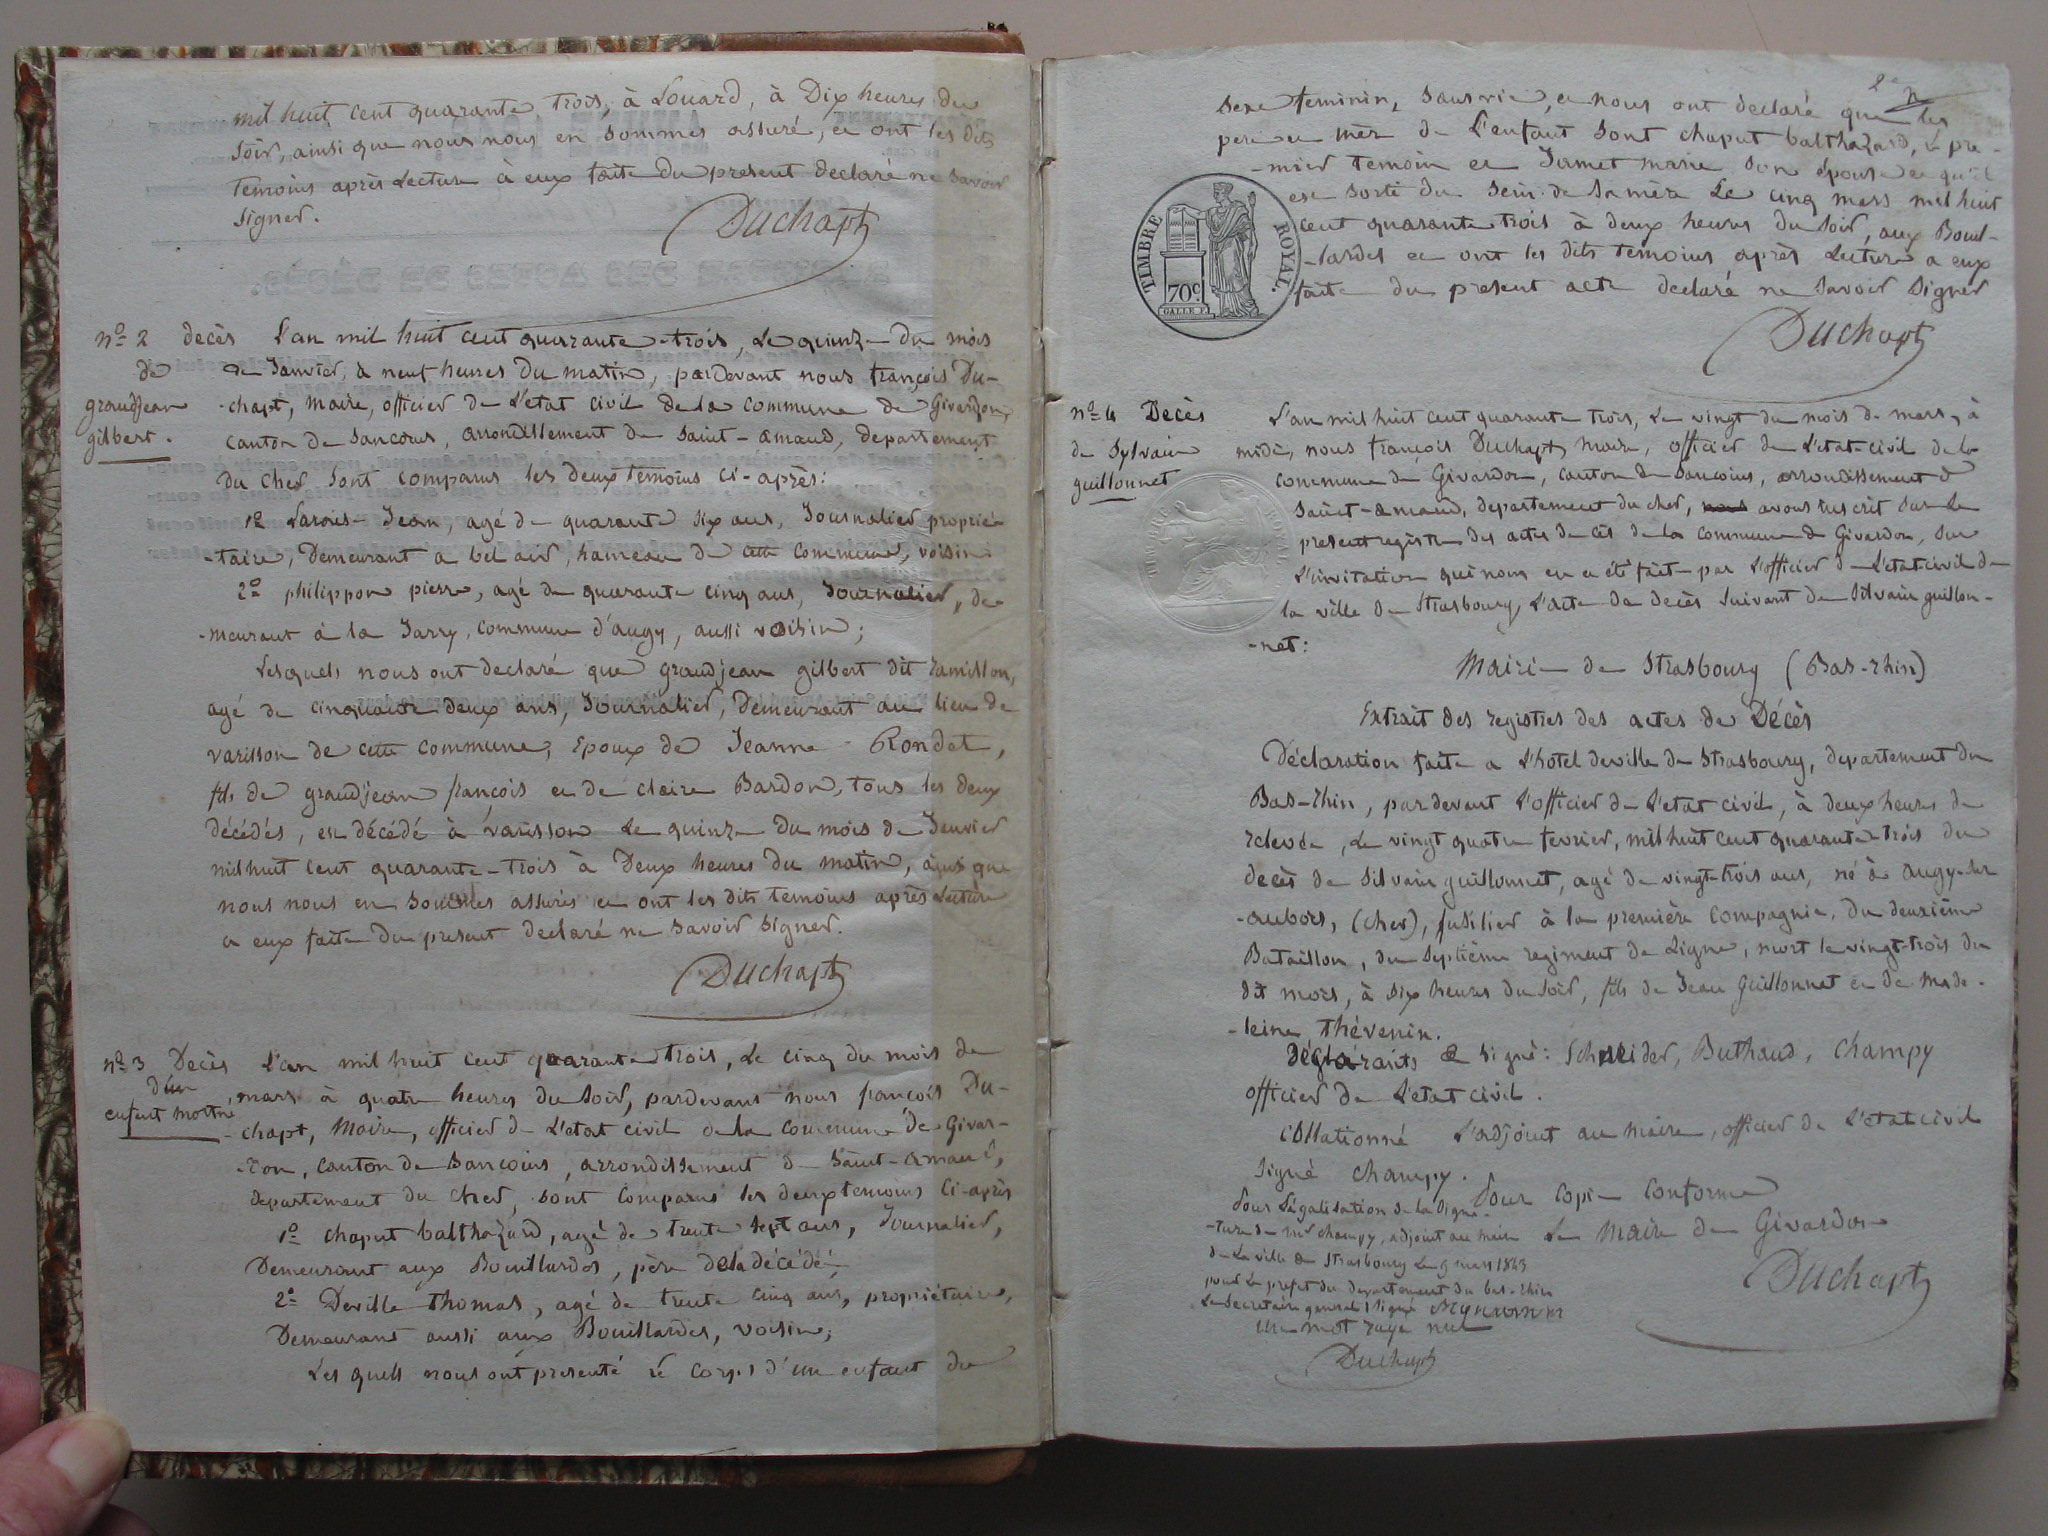 mil huit cent quarante trois, à Louard, à Dix heures du
soir, ainsi que nous nous en sommes assuré, et ont les dits
temoins après Lecture à eux faite du present declaré ne savoir
signer.
Duchapt
nº 2 decès
de
grandjean
gilbert.
L'an mil huit cent quarante-trois, Le quinze du mois
de Janvier, à neuf heures du matin, pardevant nous françois Du-
-chapt, maire, officier de L'etat civil de la commune de Givardon,
canton de Sancoins, arrondissement de Saint-amand, departement
du cher sont comparus les deux temoins ci-après:
1º Larois Jean, agé de quarante six ans, Journalier proprié-
-taire, Demeurant a bel air, hameau de cette commune, voisin
2º philippon pierre, agé de quarante cinq ans, Journalier, de
-meurant à la Jarry, commune d'augy, aussi voisin;
Lesquels nous ont declaré que grandjean gilbert dit ramillon,
agé de cinquante deux ans, Journalier, demeurant au lieu de
varisson de cette commune, Epoux de Jeanne Rondet,
fils de grandjean françois et de claire Bardon, tous les deux
décédés, est décédé à varisson Le quinze du mois de Janvier
mil huit cent quarante-trois à Deux heures du matin, ainsi que
nous nous en sommes assurés et ont les dits temoins après Lecture
a eux faite du present declaré ne savoir signer.
Duchapt
nº 3 Decès
d'un
enfant mort né
L'an mil huit cent quarante trois, Le cinq du mois de
mars à quatre heures du soir, pardevant nous françois Du-
-chapt, Maire, officier de L'etat civil de la commune de Givar-
-don, canton de Sancoins, arrondissement de Saint-amand,
departement du cher, sont comparus les deux temoins ci-après
1º chaput balthazard, agé de trente sept ans, Journalier,
Demeurant aux Bouillardes, père de la décédé,
2º Deville thomas, agé de trente cinq ans, propriétaire,
Demeurant aussi aux Bouillardes, voisin;
Les quels nous ont presenté le corps d'un enfant du
2e
sexe feminin, sans vie, et nous ont declaré que les
pere et mère de L'enfant sont chaput balthazard, le pre-
-mier temoin et Jamet marie son épouse et qu'il
est sorti du sein de sa mère Le cinq mars mil huit
cent quarante trois à deux heures du soir, aux Bouil-
-lardes et ont les dits temoins après Lecture a eux
faite du present acte declaré ne savoir signer
Duchapt
TIMBRE ROYAL.
70c
GALLE F.
nº 4 Decès
de Sylvain
guillonnet
L'an mil huit cent quarante trois, Le vingt du mois de mars, à
midi, nous françois Duchapt, maire, officier de L'etat-civil de la
commune de Givardon, canton de Sancoins, arrondissement de
Saint-amand, departement du cher, nous avons inscrit sur le
present registre des actes de cès de la commune de Givardon, sur
L'invitation qui nous en a été faite par L'officier de L'etat civil de
la ville de Strasbourg, L'acte de decès suivant de Silvain guillon-
-net:
Mairie de Strasbourg (Bas-rhin)
Extrait des registres des actes de Décès
Déclaration faite a L'hotel deville de Strasbourg, departement du
Bas-rhin, pardevant L'officier de L'etat civil, à deux heures de
relevée, Le vingt quatre fevrier, mil huit cent quarante trois du
decès de Silvain guillonnet, agé de vingt-trois ans, né à augy-sur
-aubois, (cher), fusilier à la première compagnie, du deuxième
Bataillon, du septième regiment de Ligne, mort le vingt-trois du
dit mois, à dix heures du soir, fils de Jean Guillonnet et de made-
-leine Thévenin.
Déclarants & signé: Schneider, Buthaud, Champy
officier de L'etat civil.
Collationné L'adjoint au maire, officier de L'etat civil
signé champy.
Pour Légalisation de la signa-
-ture de mr champy, adjoint au maire
de La ville de Strasbourg Le 9 mars 1843
pour Le prefet du departement du bas-rhin
Le Secretaire general signé
un mot rayé nul
Duchapt
Pour Copie Conforme
Le Maire de Givardon
Duchapt